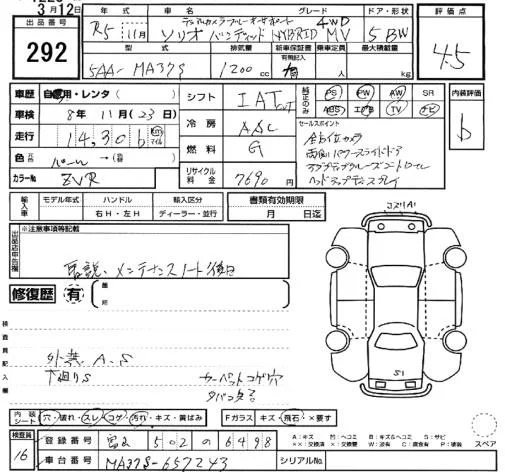 3月12日
出品番号
292
年式
車名
グレード
ドア・形状
評価点
R5 11月
ソリオ バンディット HYBRID MV
4WD
5 BW
4.5
型式
排気量
新車保証書
有無記入
乗車定員
最大積載量
5AA-MA37S
1200 cc
有
人
kg
車歴
自家用・レンタ( )
車検
8年 11月(23日)
走行
14,306
km
マイル
色
元色
パール→(
替色
)
カラーNo.
ZVR
シフト
IAT
冷房
AAC
燃料
G
リサイクル料金
7690 円
純正のみ
PS
PW
AW
SR
ABS
エアB
TV
ナビ
内装評価
b
セールスポイント
全方位カメラ
両側パワースライドドア
アダプティブクルーズコントロール
ヘッドアップディスプレイ
輸入車
モデル年式
ハンドル
輸入区分
右H・左H
ディーラー・並行
書類有効期限
月 日迄
出品店申告欄
※注意事項等記載
取説、メンテナンスノート後日
修復歴
有
箇所
コスリA1
S1
検査員記入欄
外装 A.S
下廻りS
カーペットコゲ穴
タバコ臭
内装シート
穴・破れ・スレ・コゲ・汚れ・キズ・黄ばみ
Fガラス
キズ・飛石・×要す
A:キズ
U:ヘコミ
B:キズ&ヘコミ
S:サビ
××:交換済
×:要交換
W:波有
C:腐食有
P:塗装
スペア
検査員
16
登録番号
502 の 6498
車台番号
MA37S-657243
シリアルNo.